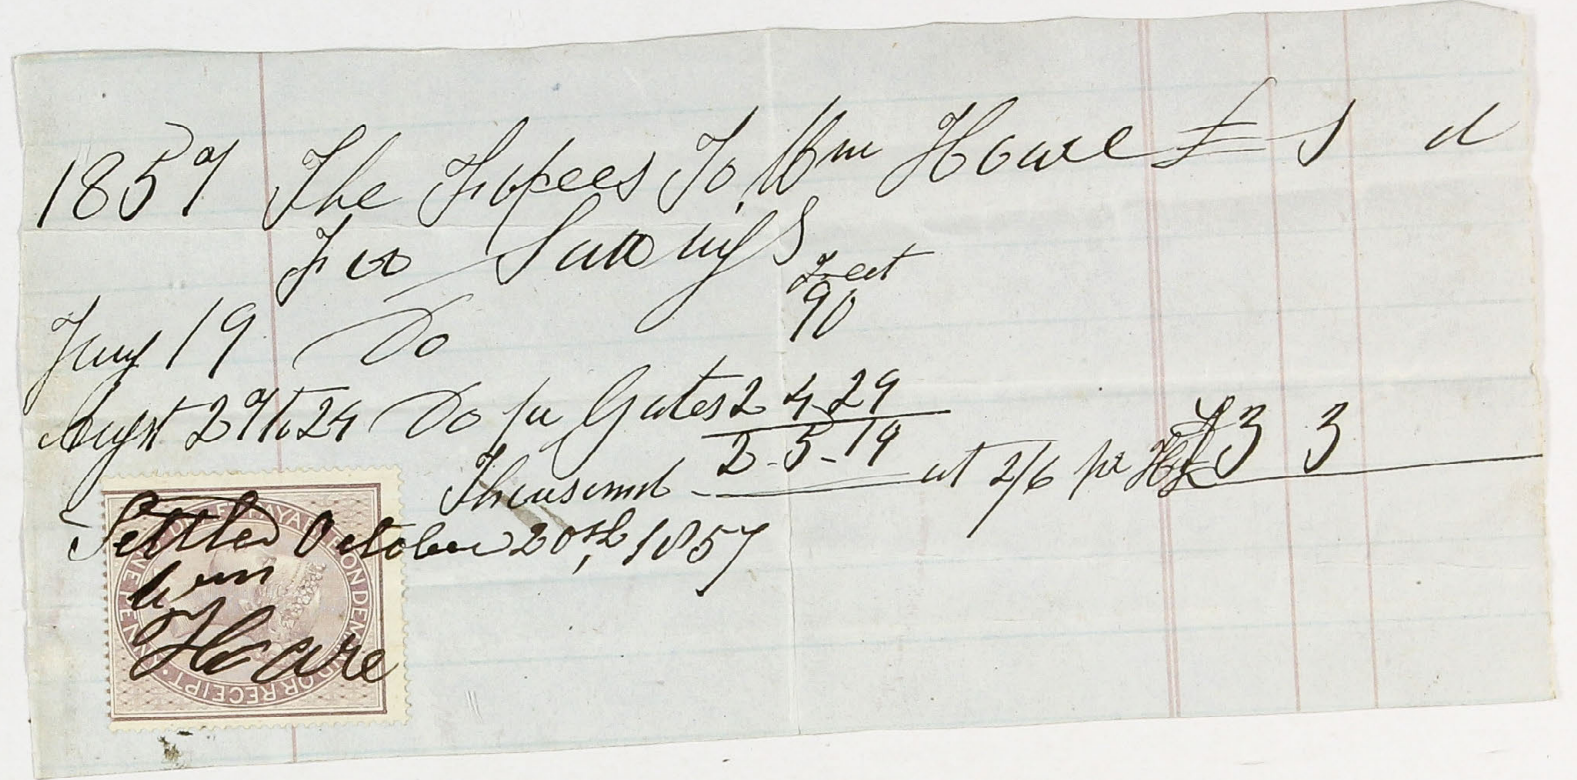 1857 The Fofees To Wm Hoare £ s d
For Sawings
Feet
July 19 Do 90
Augst 27 to 24 Do for Gates 2 4 29
2-5-19
Thousand - at 2/6 pr £3 3
Settled October 20th, 1857
Wm
Hoare
INLAND REVENUE PAYABLE ON DEMAND OR RECEIPT ONE PENNY